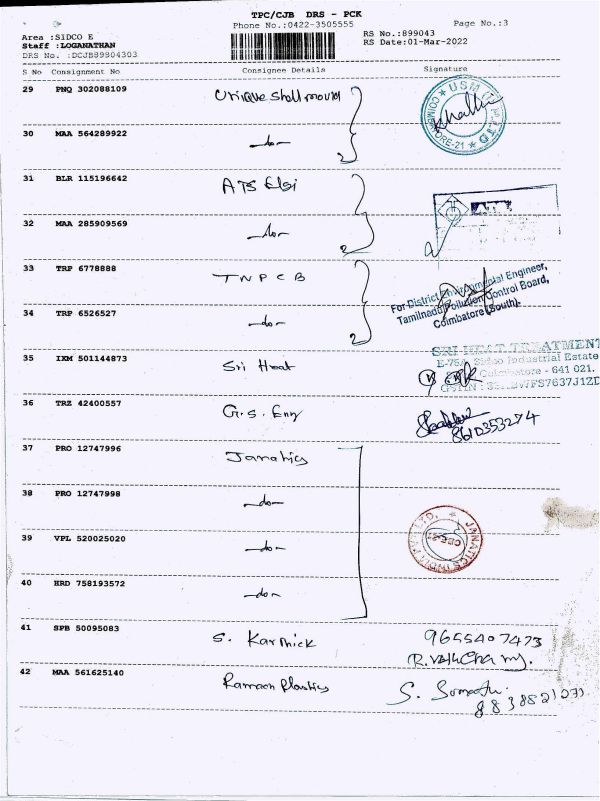 TPC/CJB DRS - PCK
Phone No.:0422-3505555
Page No.:3
Area :SIDCO E
Staff :LOGANATHAN
DRS No. :DCJB89804303
RS No.:899043
RS Date:01-Mar-2022
S No Consignment No Consignee Details Signature
29 PNQ 302088109 Unique Shell mould
30 MAA 564289922 -do-
2
USM
COIMBATORE-21
31 BLR 115196642 ATS Elgi
32 MAA 285909569 -do-
2
33 TRP 6778888 TNPCB
34 TRP 6526527 -do-
2
For District Environmental Engineer,
Tamilnadu Pollution Control Board,
Coimbatore (South).
35 IXM 501144873 Sri Heat
SRI HEAT TREATMENT
E-75A, Sidco Industrial Estate
Coimbatore - 641 021.
36 TRZ 42400557 G.S. Eny
37 PRO 12747996 Janatics
38 PRO 12747998 -do-
39 VPL 520025020 -do-
40 HRD 758193572 -do-
JANATICS INDIA PVT LTD.
41 SPB 50095083 S. Karthick 9655407473
42 MAA 561625140 Raman Plastics